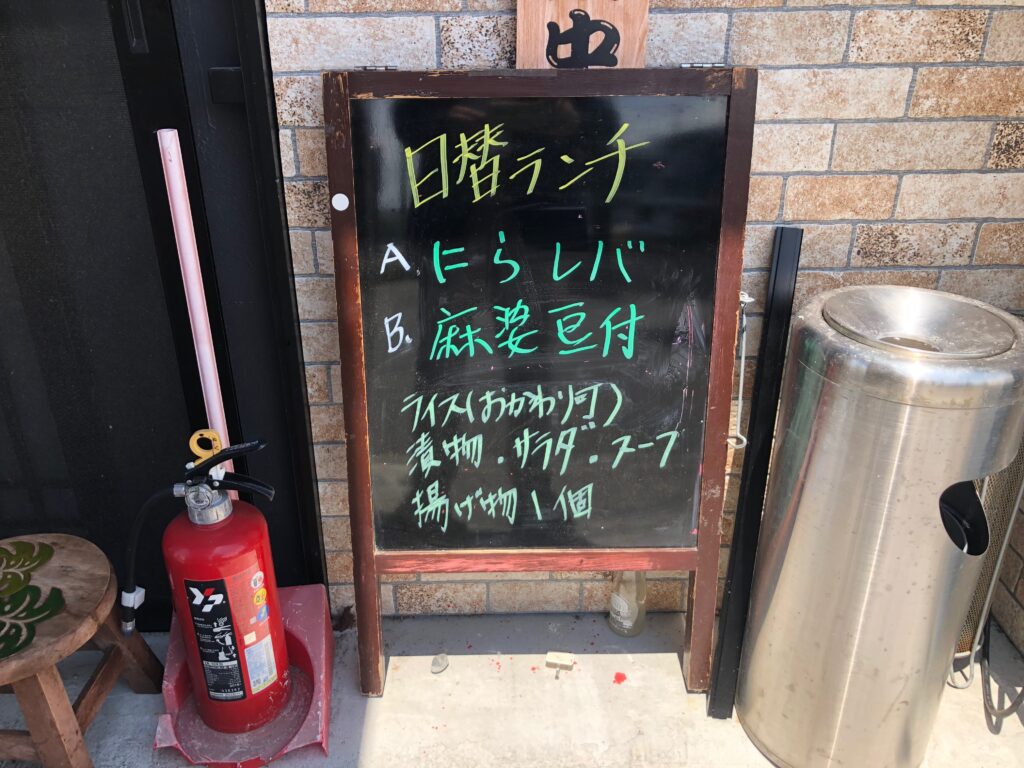 日替ランチ
A. にらレバ
B. 麻婆豆付
ライス(おかわり可)
漬物・サラダ・スープ
揚げ物1個